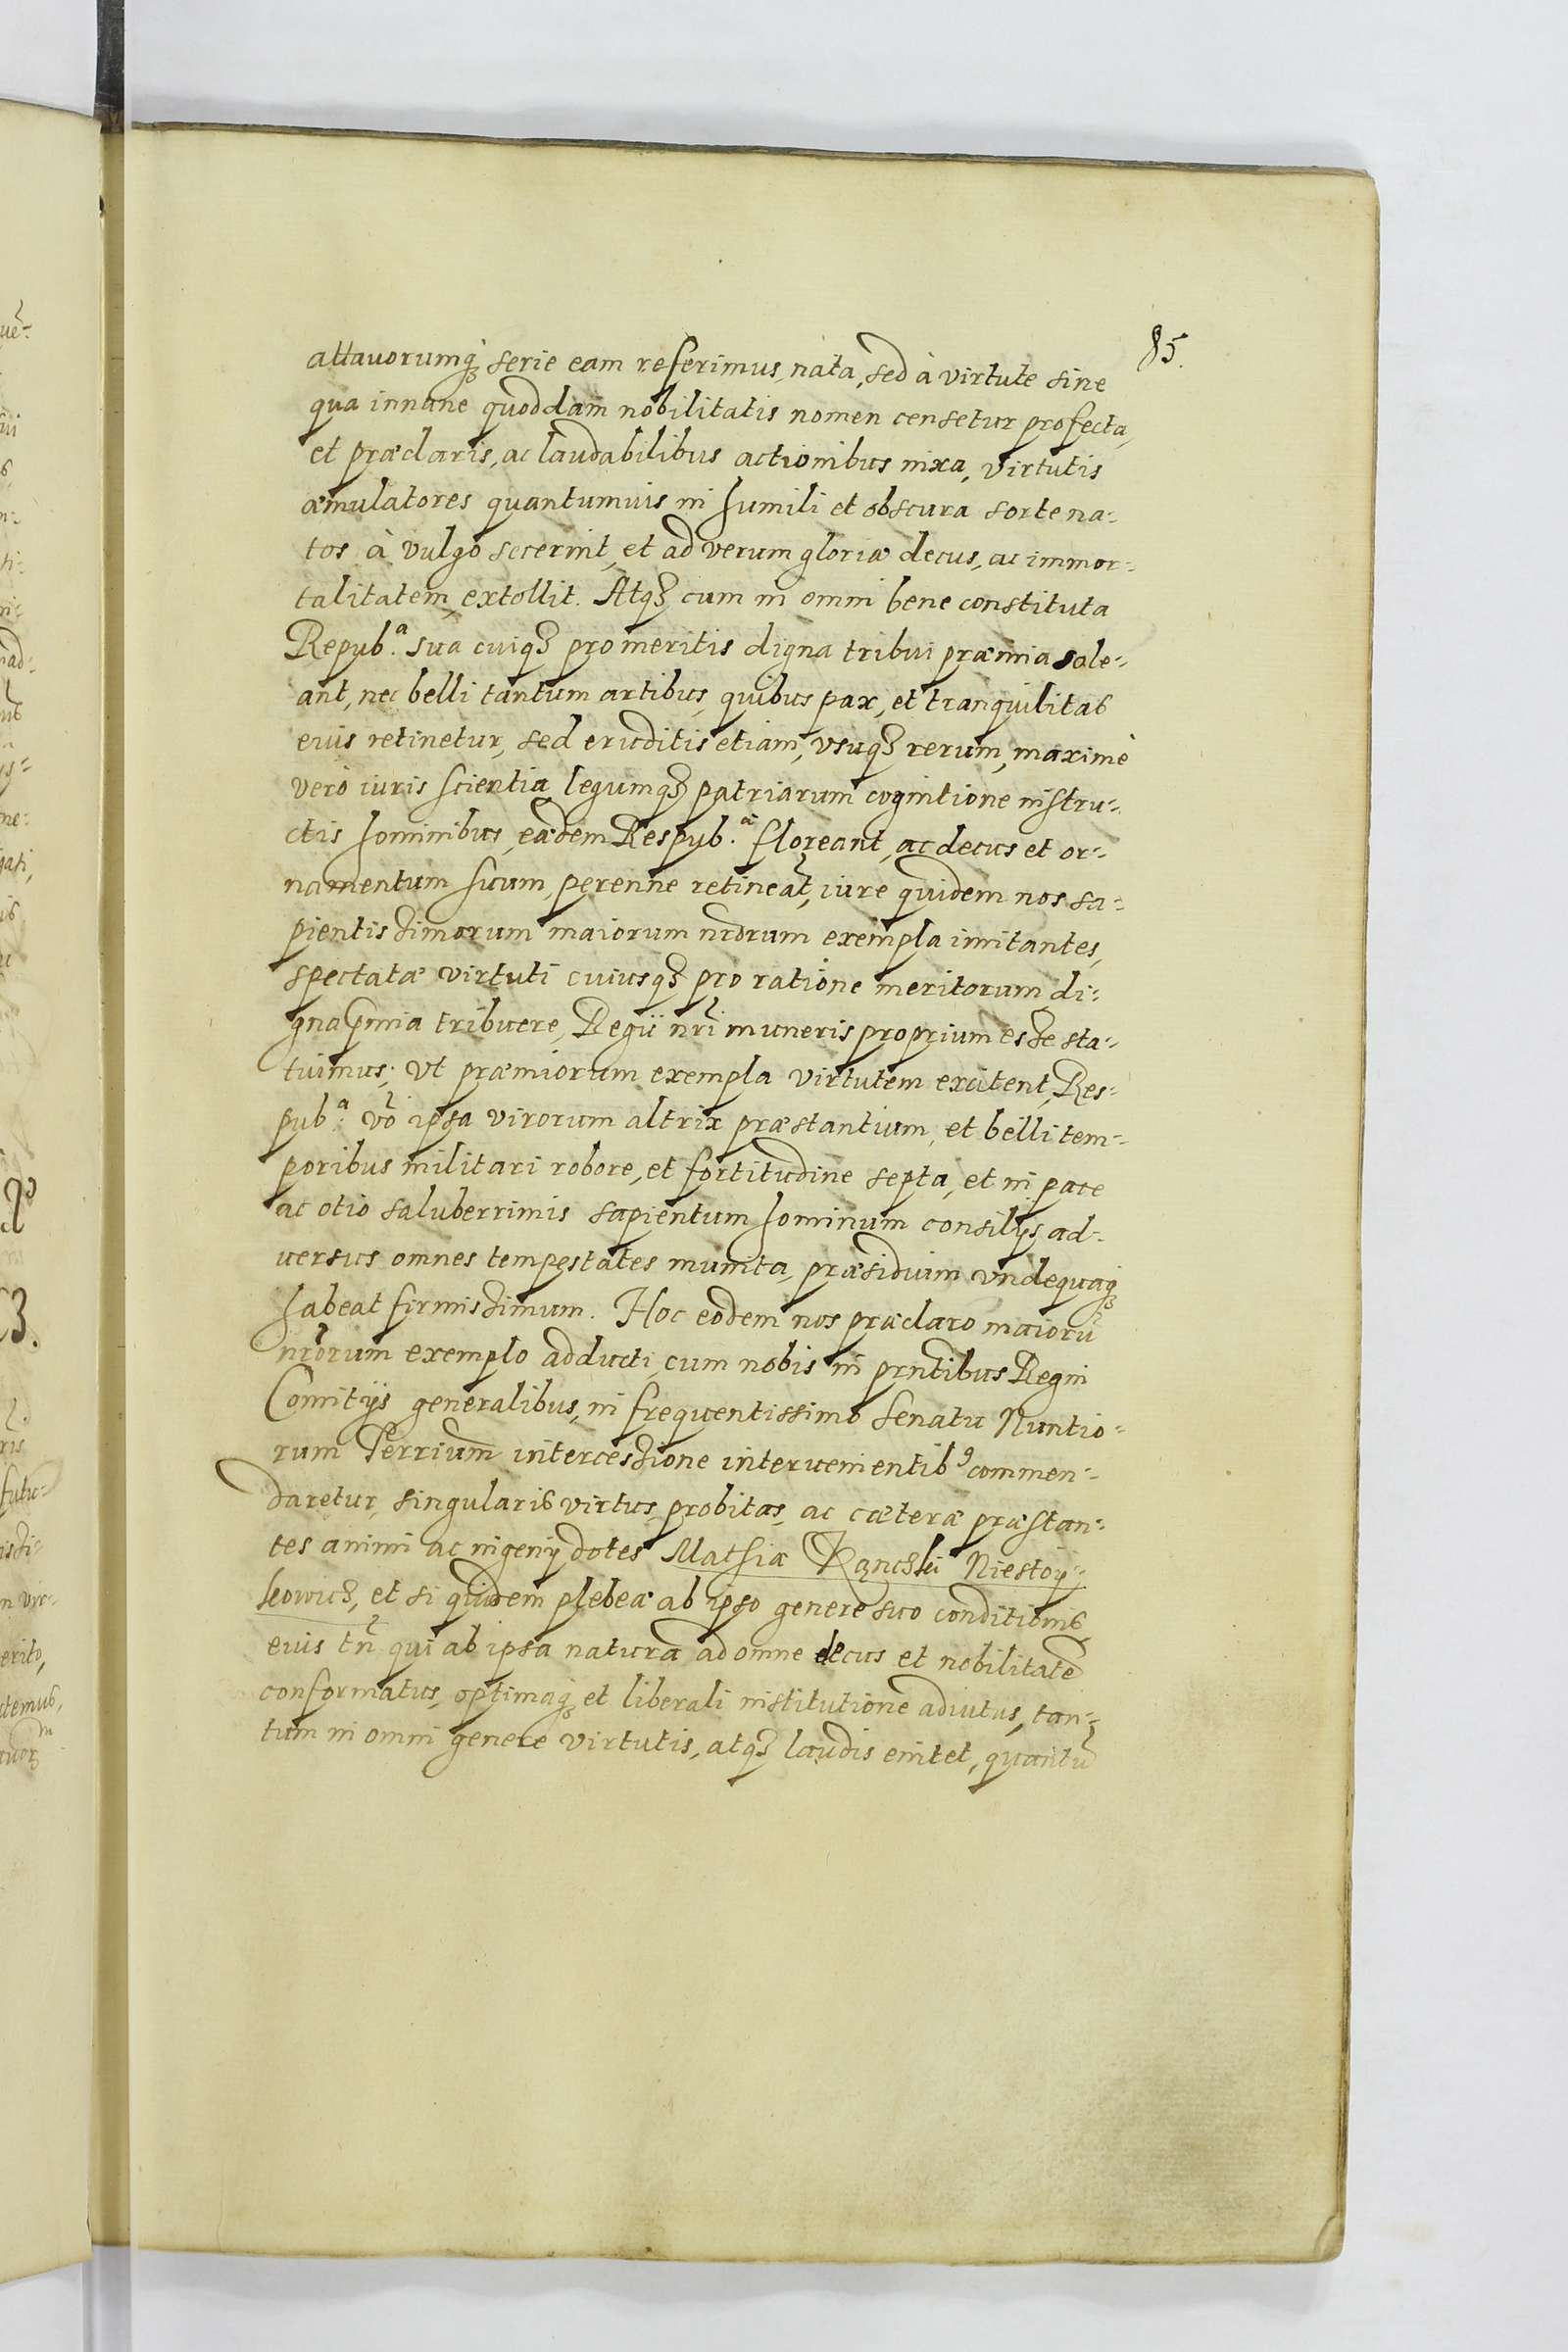 85.
attauorumq₃ serie eam referimus, nata, sed à virtute sine
qua innane quoddam nobilitatis nomen censetur profecta,
et præclaris, ac laudabilibus actionibus nixa, virtutis
æmulatores quantumuis in humili et obscura sorte na-
tos à vulgo secernit, et ad verum gloriæ decus, ac immor-
talitatem extollit. Atq₃ cum in omni bene constituta
Repub.ᵃ sua cuiq₃ pro meritis digna tribui præmia sole-
ant, nec belli tantum artibus, quibus pax, et tranquilitas
eius retinetur, sed eruditis etiam, vsuq₃ rerum, maximè
verò iuris scientia legumq₃ patriarum cognitione instru-
ctis hominibus, eædem Respub.ᵃ floreant, ac decus et or-
namentum suum perenne retineat, iure quidem nos sa-
pientissimorum maiorum nrorum exempla imitantes,
spectatæ virtuti cuiusq₃ pro ratione meritorum di-
gna pmia tribuere, Regii nri muneris proprium esse sta-
tuimus; vt præmiorum exempla virtutem excitent, Res-
pub.ᵃ vo ipsa virorum altrix præstantium, et belli tem-
poribus militari robore, et fortitudine septa, et in pace
ac otio saluberrimis sapientum hominum consilijs ad-
uersus omnes tempestates munita, præsidium vndequaq₃
habeat firmissimum. Hoc eodem nos præclaro maiorũ
nrorum exemplo adducti, cum nobis in pntibus Regni
Comitijs generalibus, in frequentissimo Senatu Nuntio-
rum Terrium intercessione interuenientib⁹ commen-
daretur, singularis virtus, probitas, ac cæteræ præstan-
tes animi ac ingenij dotes Mathiæ Kąnczki Niestoy-
kowicz, et si quidem plebeæ ab ipso genere suo conditionis,
eius tñ qui ab ipsa natura ad omne decus et nobilitatẽ
conformatus, optimaq₃ et liberali institutione adiutus, tan-
tum in omni genere virtutis, atq₃ laudis enitet, quantũ